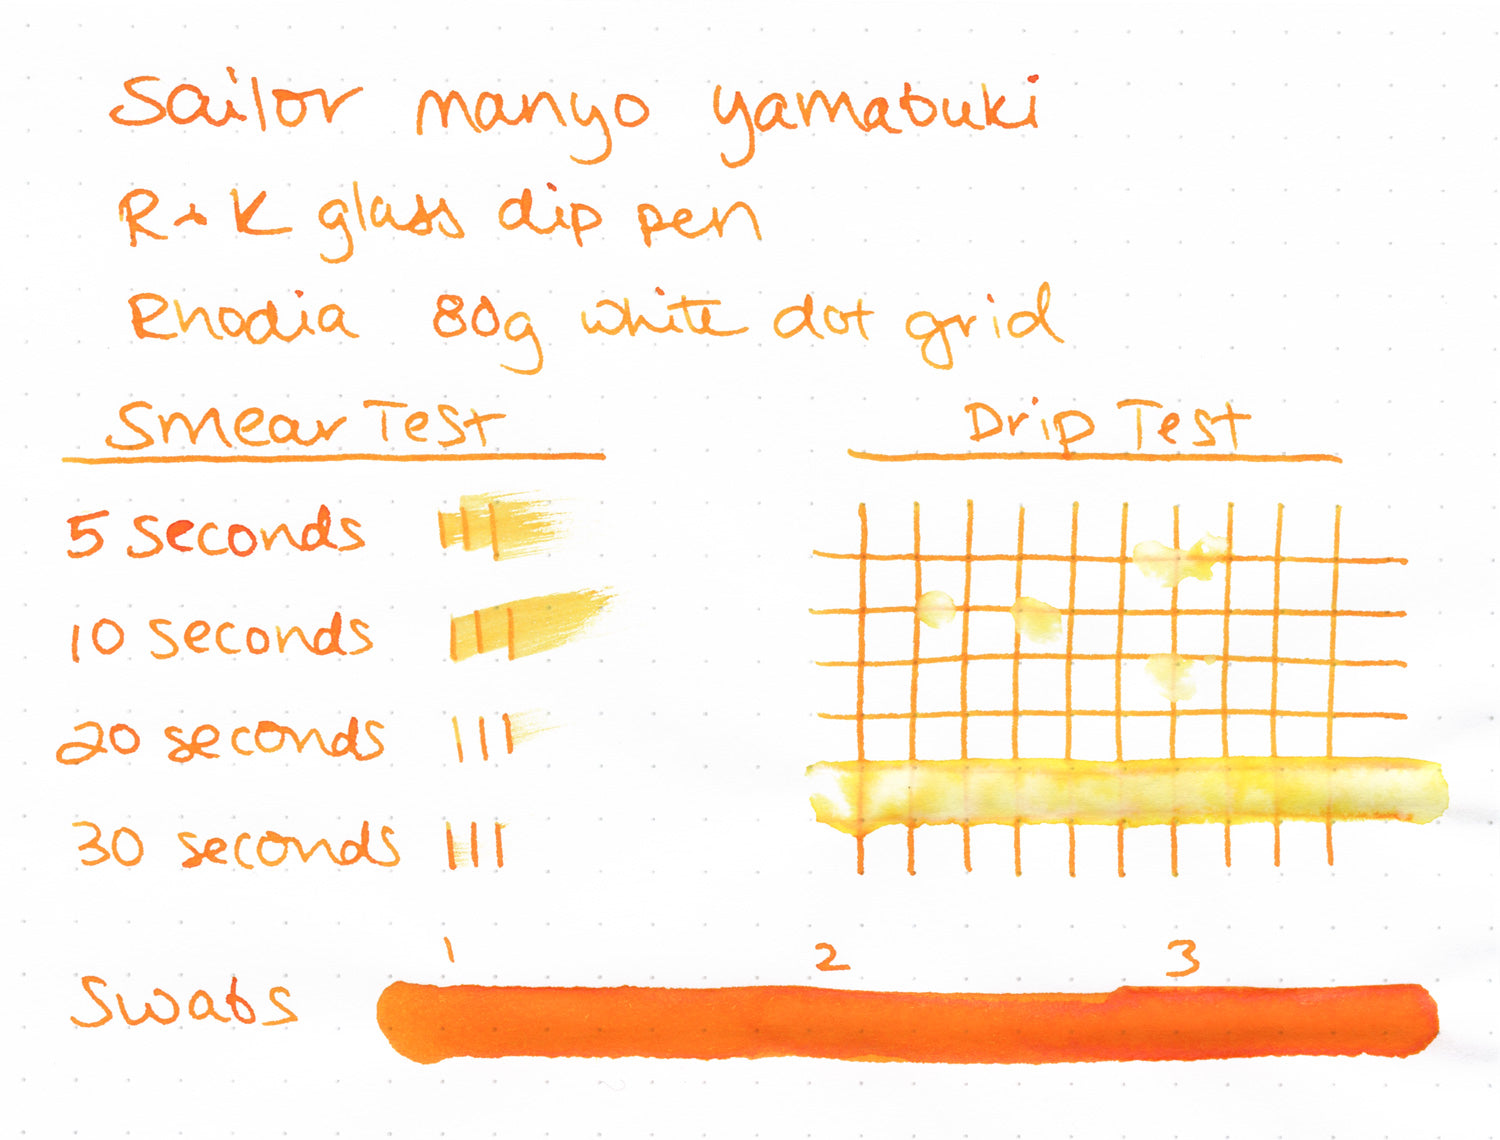 Sailor manyo yamabuki
R + K glass dip pen
Rhodia 80g white dot grid
Smear Test
Drip Test
5 seconds
10 seconds
20 seconds
30 seconds
1 2 3
Swabs